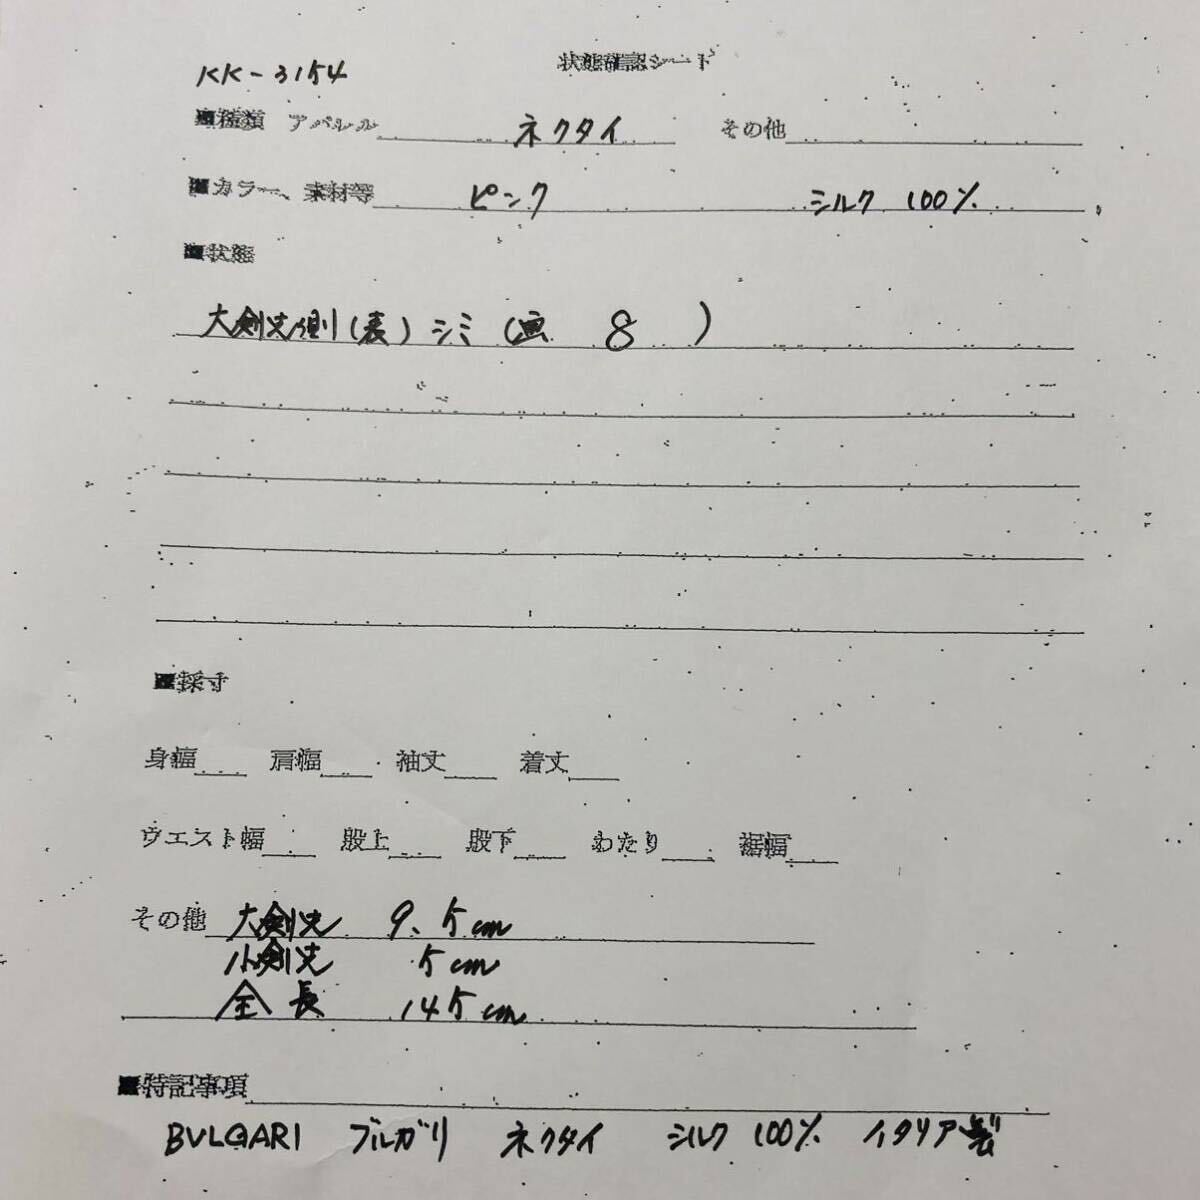 状態確認シート
KK-3154
■種類 アパレル ネクタイ その他
■カラー、素材等 ピンク シルク 100%
■状態
大剣先側(表)シミ(画 8 )
■採寸
身幅 肩幅 袖丈 着丈
ウエスト幅 股上 股下 わたり 裾幅
その他 大剣先 9.5cm
小剣先 5cm
全長 145cm
■特記事項
BVLGARI ブルガリ ネクタイ シルク 100% イタリア製